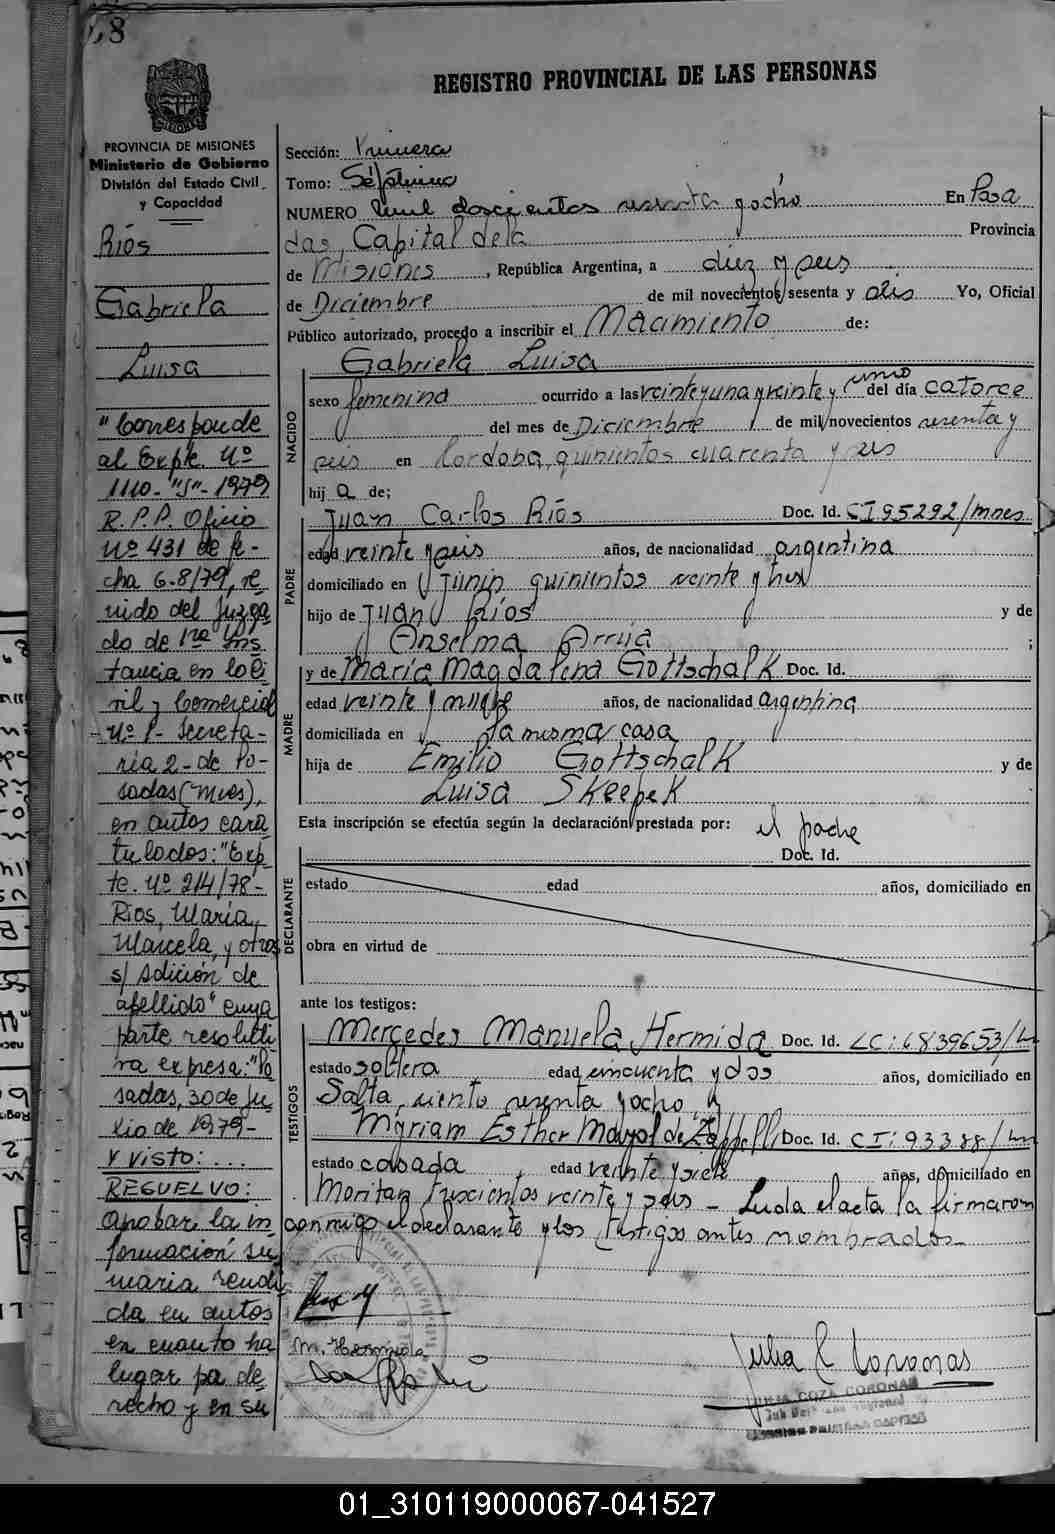 68
REGISTRO PROVINCIAL DE LAS PERSONAS
PROVINCIA DE MISIONES
Ministerio de Gobierno
División del Estado Civil
y Capacidad
Ríos
Gabriela
Luisa
"Corresponde
al Expte. Nº
1110-"S"-1979
R.P.P. Oficio
Nº 431 de fe-
cha 6-8/79, re
nido del Juzga
do de 1ra Ins
tancia en lo Ci
vil y Comercial
Nº 1- Secreta-
ría 2- de Po-
sadas (Mnes),
en autos cara
tulados: "Exp-
te. Nº 214/78-
Ríos, María
Marcela, y otros
s/ Adición de
apellido" cuya
parte resoluti
va expresa: "Po
sadas, 30 de Ju
lio de 1979-
Y VISTO: ...
RESUELVO:
Aprobar la in
formación su
maria rendi
da en autos
en cuanto ha
lugar por de
recho y en su
Sección: Primera
Tomo: Séptimo
NUMERO mil doscientos sesenta y ocho En Posa
das, Capital de la Provincia
de Misiones, República Argentina, a diez y seis
de Diciembre de mil novecientos sesenta y seis Yo, Oficial
Público autorizado, procedo a inscribir el Nacimiento de:
Gabriela Luisa
NACIDO
sexo femenino ocurrido a las veinte y una y veinte y uno del día catorce
del mes de Diciembre de mil novecientos sesenta y
seis en Córdoba, quinientos cuarenta y seis
hij a de;
PADRE
Juan Carlos Ríos Doc. Id. CI 95292/mnes
edad veinte y seis años, de nacionalidad argentina
domiciliado en Junín quinientos veinte y tres
hijo de Juan Ríos y de
Anselma Arrúa ;
MADRE
y de María Magdalena Gottschalk Doc. Id.
edad veinte y nueve años, de nacionalidad argentina
domiciliada en la misma casa
hija de Emilio Gottschalk y de
Luisa Skeepek
Esta inscripción se efectúa según la declaración prestada por: el padre
DECLARANTE
Doc. Id.
estado edad años, domiciliado en
obra en virtud de
ante los testigos:
TESTIGOS
Mercedes Manuela Hermida Doc. Id. LC: 6839653/
estado soltera edad cincuenta y dos años, domiciliado en
Salta, ciento sesenta y ocho y
Myriam Esther Mayol de Zappelli Doc. Id. CI: 93388/
estado casada, edad veinte y siete años, domiciliado en
Moritan trescientos veinte y seis - Leída el acta la firmaron
conmigo el declarante y los testigos antes nombrados-
M. Hermida
Julia C Coronas
JULIA COZA CORONAS
01_310119000067-041527